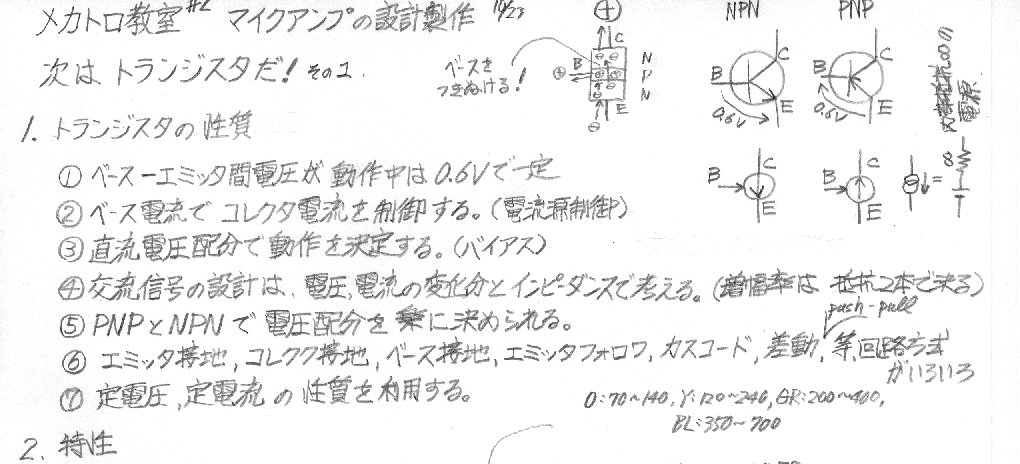 メカトロ教室 #2 マイクアンプの設計製作 10/23
次は トランジスタだ! その1.
ベースを
つきぬける!
⊕ B C E N P N
NPN B C E 0.6V
PNP B C E 0.6V
B C E
B C E
∞の
電源
1. トランジスタの性質
① ベースーエミッタ間電圧が動作中は0.6Vで一定
② ベース電流でコレクタ電流を制御する。(電流源制御)
③ 直流電圧配分で動作を決定する。(バイアス)
④ 交流信号の設計は、電圧、電流の変化分とインピーダンスで考える。(増幅率は 抵抗2本で決る)
⑤ PNPとNPNで電圧配分を楽に決められる。
push-pull
⑥ エミッタ接地, コレクタ接地, ベース接地, エミッタフォロワ, カスコード, 差動, 等回路方式
がいろいろ
⑦ 定電圧, 定電流の性質を利用する。
O:70~140, Y:120~240, GR:200~400,
BL:350~700
2. 特性